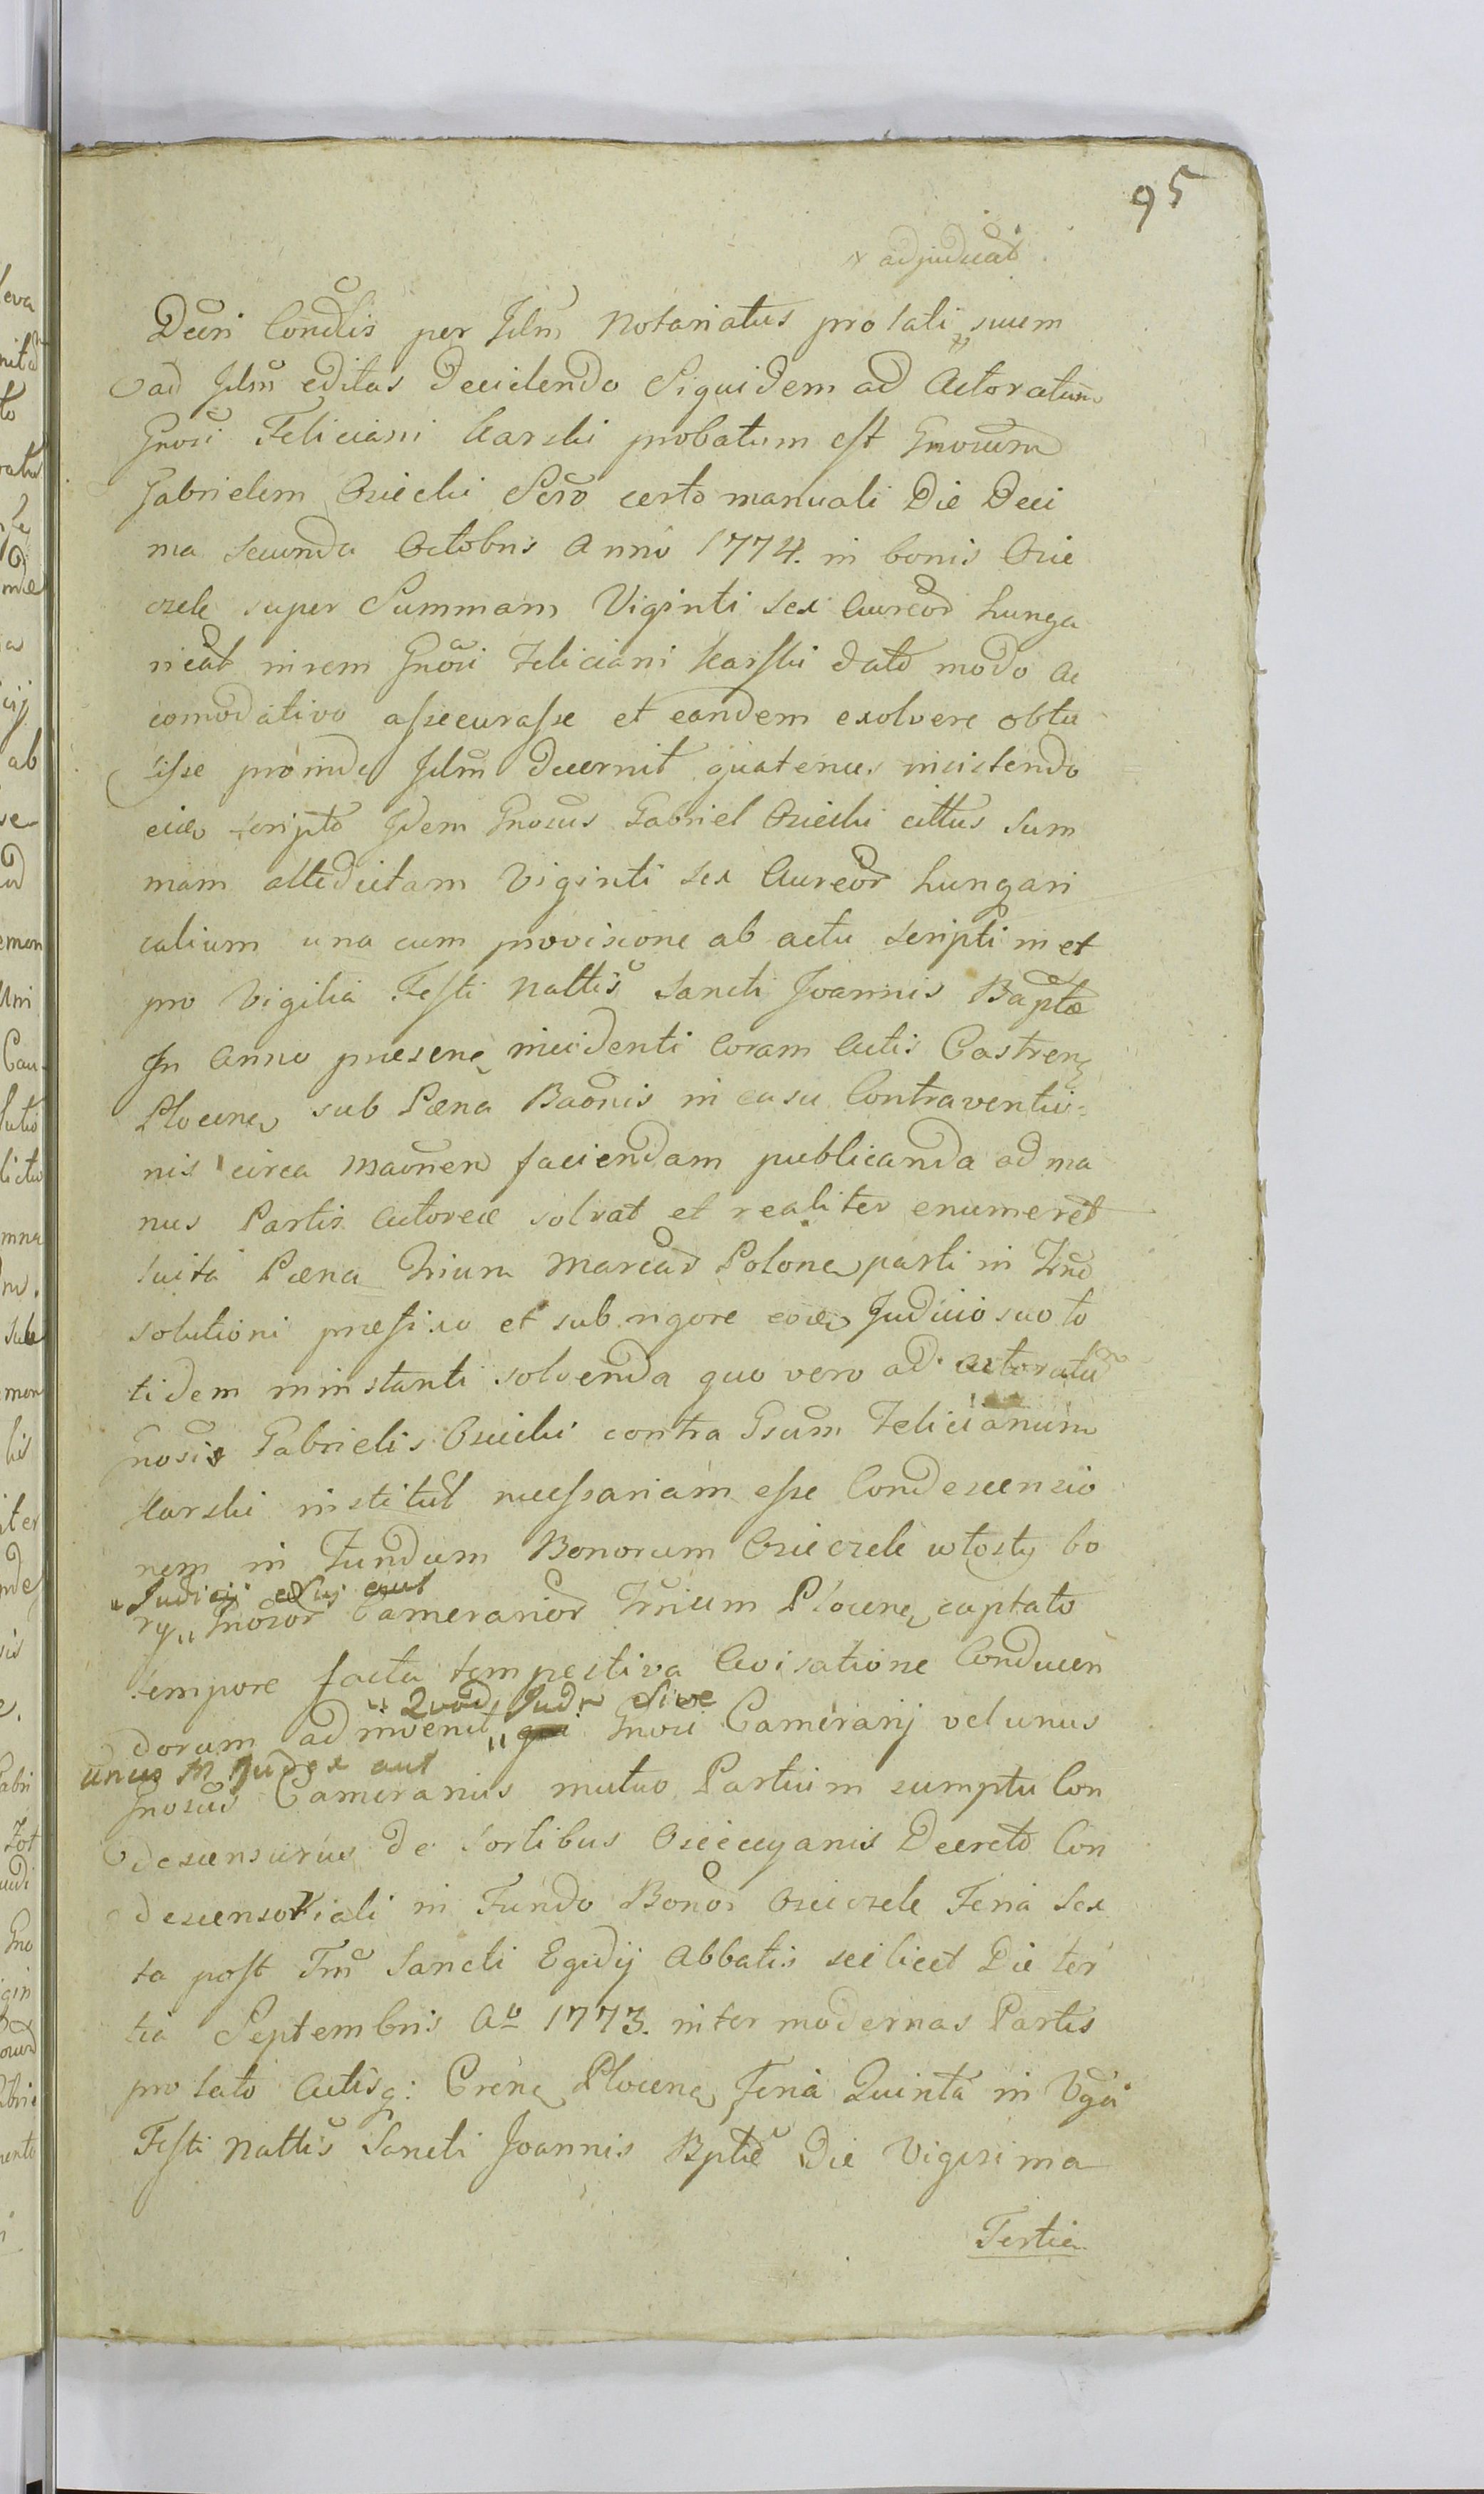 95
x adjudicat
Decri Condlis per Jdm Notariatus pro lati x suum
ad Jdm editas Decidendo Siquidem ad Actoratum
Gnosi Feliciani Karski probatum est Gnosum
Gabrielem Osiecki Scro certo manuali Die Deci
ma secunda Octobris Anno 1774. in bonis Osie
czele super Summam Viginti sex Aureor hunga
ricat in rem Gnosi Feliciani Karski dato modo ac
comodativo assecurasse et eandem exolvere obtu
lisse proinde Jdm decernit quatenus insistendo
eidem scripto Idem Gnosus Gabriel Osiecki cittus sum
mam attedictam Viginti sex Aureor hungari
calium una cum provisione ab actu scripti in et
pro Vigilia Festi Nattis Sancti Joannis Baptæ
In Anno præsene incidenti Coram Actis Castrene
Plocene sub Pæna Baonis in casu Contraventio=
nis circa maonem faciendam publicanda ad ma
nus Partis Actoreæ solvat et realiter enumeret
luita Pæna Trium Marcar Polone parti in Trno
solutioni præfixo et sub rigore Judicio suo to
tidem in instanti solvenda quo vero ad actoratu
Gnosi Gabrielis Osiecki contra Gsum Felicianum
Karski institut necessariam esse Condescensio
nem in Fundum Bonorum Osieczele wtosty bo
" Judicij aut
ry " Gnosor Camerarior Trium Plocene captato
tempore facta tempestiva Avisatione Conducen
" Quod Jud. sive
dorum adinvenit " Gnosi Camerarij vel unus
unus M Judex aut
Gnosus Camerarius mutuo Partium sumptu Con
descensurus de sortibus Osieceyanis Decreto Con
descensoriali in Fundo Bonor Osieczele Feria Sex
ta post Fm Sancti Egidij Abbatis scilicet Die ter
tia Septembris Ao 1773. inter modernas Partes
pro lato Actisq: Crene Plocene Feria Quinta in Vgia
Festi Nattis Sancti Joannis Bptæ Die Vigesima
Tertia